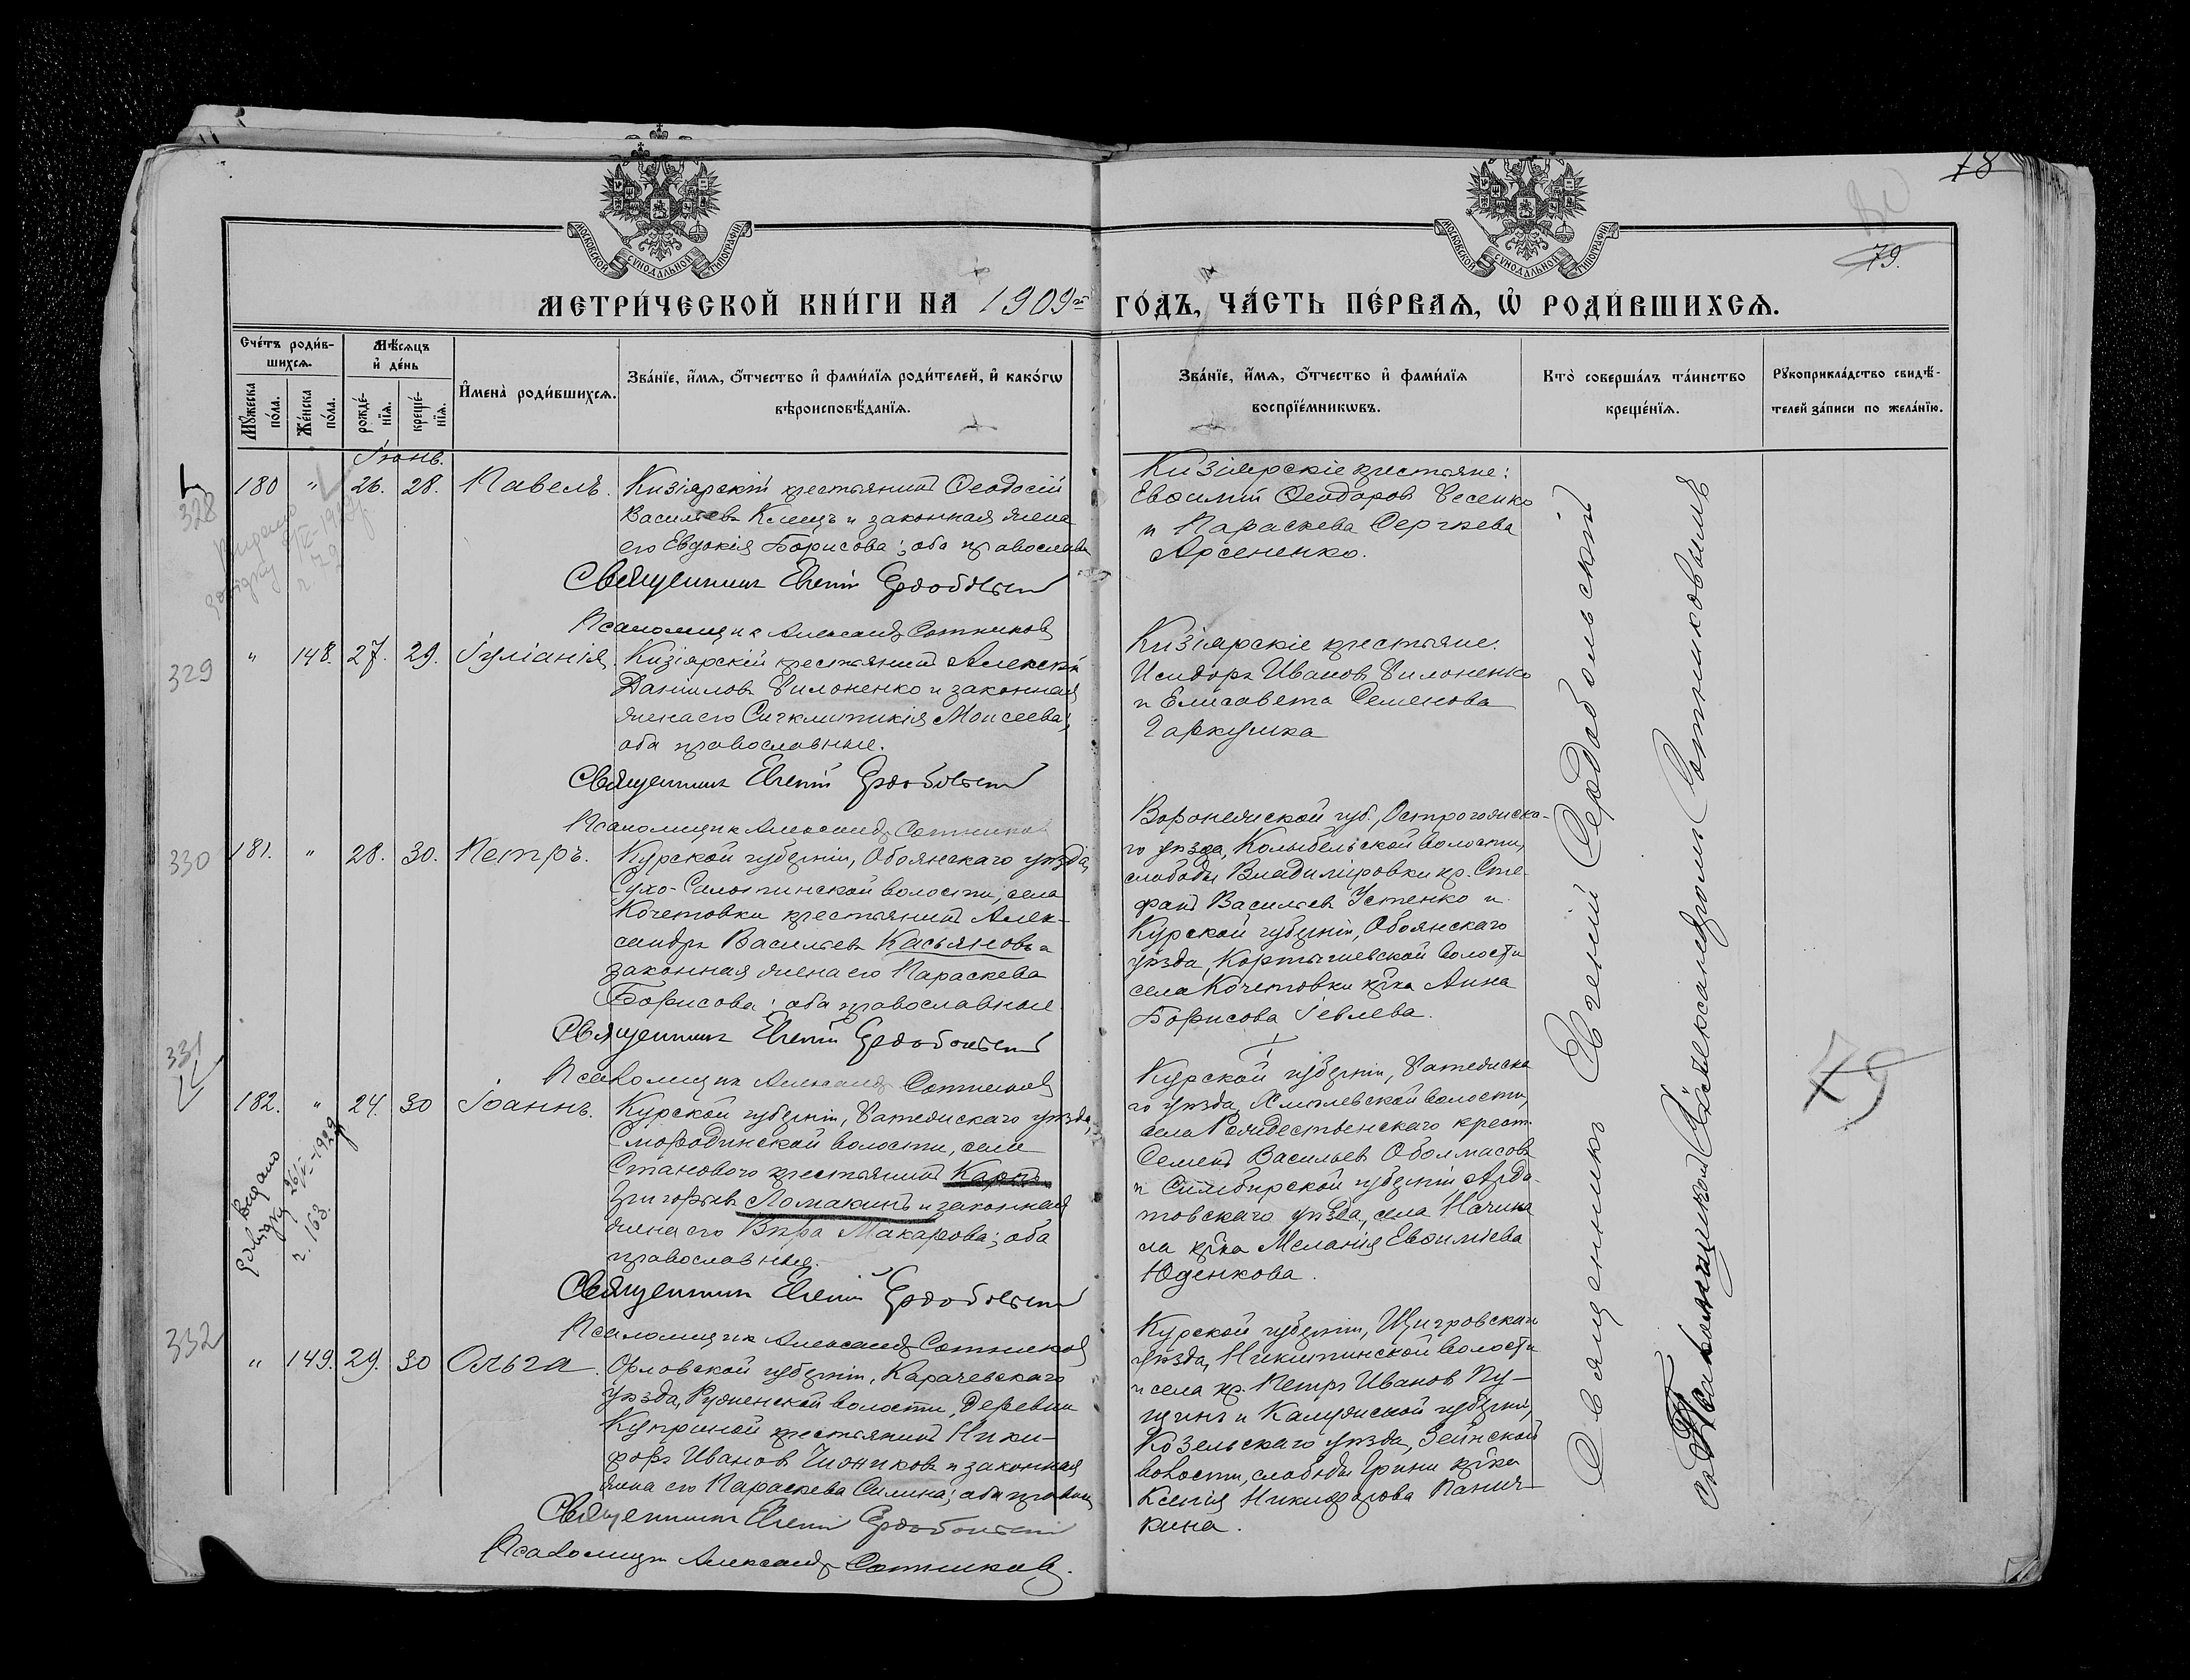 78
79.
МОСКОВСКОЙ СѴНОДАЛЬНОЙ ТИПОГРАФІИ
МОСКОВСКОЙ СѴНОДАЛЬНОЙ ТИПОГРАФІИ
МЕТРИ́ЧЕСКОЙ КНИ́ГИ НА 1909й ГО́ДЪ, ЧА́СТЬ ПЕ́РВАѦ, Ѡ҆ РОДИ́ВШИХСѦ.
Сче́тъ роди́в-
шихсѧ.
Мꙋ́жеска
по́ла.
Же́нска
по́ла.
Мѣ́сѧцъ
и҆ де́нь
рожде́-
нїѧ.
креще́-
нїѧ.
И҆мена̀ роди́вшихсѧ.
Зва́нїе, и҆́мѧ, ѻ҆́тчество и҆ фами́лїѧ роди́телей, и҆ како́гѡ
вѣроисповѣ́данїѧ.
Зва́нїе, и҆́мѧ, ѻ҆́тчество и҆ фами́лїѧ
воспрїе́мникѡвъ.
Кто̀ соверша́лъ та́инство
креще́нїѧ.
Рꙋкоприкла́дство свидѣ́-
телей за́писи по жела́нїю.
Іюнь.
328
180 " 26. 28. Павелъ.
Кизіярскій крестьянинъ Ѳеодосій
Васильевъ Клещъ и законная жена
его Евдокія Борисова; оба православн
Священникъ Евгеній Сердобольскій
Псаломщикъ Александръ Сотниковъ
Кизіярскіе крестьяне:
Евѳимій Ѳеодоровъ Фесенко
и Параскева Сергѣева
Арсененко.
329
" 148. 27. 29. Іуліанія.
Кизіярскій крестьянинъ Алексѣй
Даниловъ Филоненко и законная
жена его Сигклитикія Моисеева;
оба православные.
Священникъ Евгеній Сердобольскій
Псаломщикъ Александръ Сотниковъ
Кизіярскіе крестьяне:
Исидоръ Ивановъ Филоненко
и Елисавета Семенова
Гаркушка
330
181. " 28. 30. Петръ.
Курской губерніи, Обоянскаго уѣзда,
Сухо-Солотинской волости, села
Кочетовки крестьянинъ Алек-
сандръ Васильевъ Касьяновъ и
законная жена его Параскева
Борисова; оба православные.
Священникъ Евгеній Сердобольскій
Псаломщикъ Александръ Сотниковъ
Воронежской губ., Острогожска-
го уѣзда, Колыбельской волости,
слободы Владиміровки кр. Сте-
фанъ Васильевъ Устенко и
Курской губерніи, Обоянскаго
уѣзда, волости
села Кочетовки кр-ка Анна
Борисова Іевлева.
331
182. " 24. 30 Іоаннъ.
Видано
довідку 26/IV-1929
ч. 163.
Курской губерніи, Фатежскаго уѣзда,
Смородинской волости, села
Становаго крестьянинъ Карпъ
Григорьевъ Ломакинъ и законная
жена его Вѣра Макарова; оба
православные.
Священникъ Евгеній Сердобольскій
Псаломщикъ Александръ Сотниковъ
Курской губерніи, Фатежска-
го уѣзда, волости,
села Рождественскаго крест.
Семенъ Васильевъ Оболмасовъ
и Симбирской губерніи Арда-
товскаго уѣзда, села
кр-ка Меланія Евѳиміева
Юденкова.
332
" 149. 29. 30 Ольга.
Орловской губерніи, Карачевскаго
уѣзда, волости, деревни
Куприной крестьянинъ Ники-
форъ Ивановъ и законная
жена его Параскева Силина; оба правосл
Священникъ Евгеній Сердобольскій
Псаломщикъ Александръ Сотниковъ.
Курской губерніи, Щигровскаго
уѣзда, Никитинской волости
и села кр. Петръ Ивановъ Пу-
щинъ и Калужской губерніи,
Козельскаго уѣзда,
волости, слободы кр-ка
Ксенія Никифорова Панич-
кина.
Священникъ Евгеній Сердобольскій
Съ Псаломщикомъ Александромъ Сотниковымъ
79